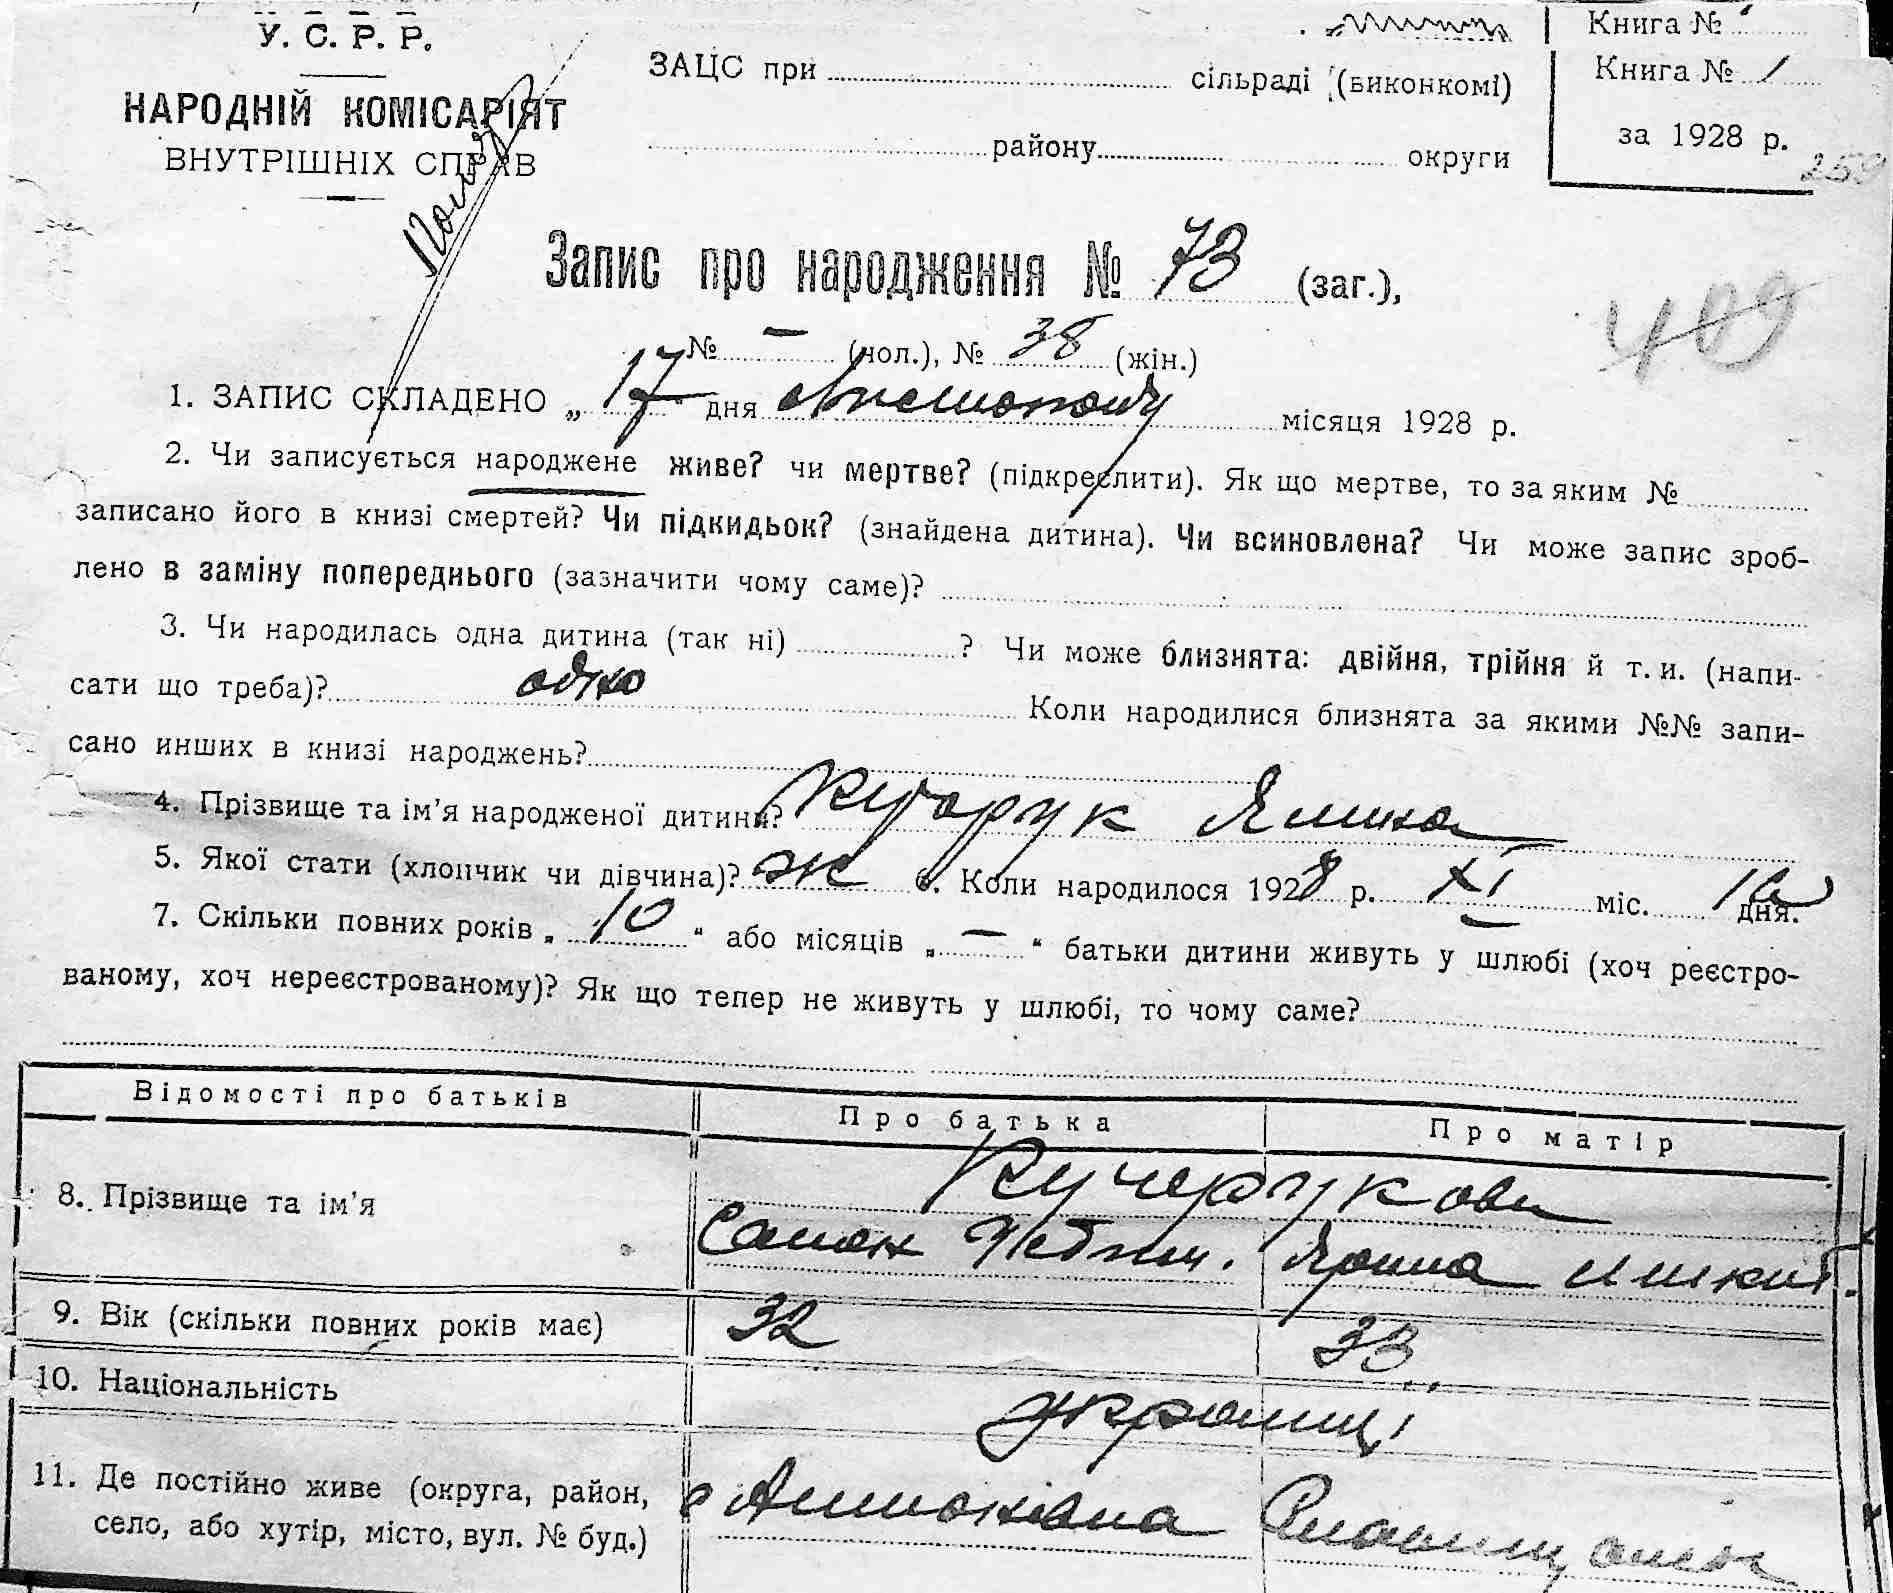 У. С. Р. Р.
НАРОДНІЙ КОМІСАРІЯТ
ВНУТРІШНІХ СПРАВ
ЗАЦС при сільраді (виконкомі)
району округи
Книга №
Книга № 1
за 1928 р.
259
Запис про народження № 73 (заг.),
409
№ — (чол.), № 38 (жін.)
1. ЗАПИС СКЛАДЕНО „ 17 " дня Листопаду місяця 1928 р.
2. Чи записується народжене живе? чи мертве? (підкреслити). Як що мертве, то за яким №
записано його в книзі смертей? Чи підкидьок? (знайдена дитина). Чи всиновлена? Чи може запис зроб-
лено в заміну попереднього (зазначити чому саме)?
3. Чи народилась одна дитина (так ні) ? Чи може близнята: двійня, трійня й т. и. (напи-
сати що треба)? одно Коли народилися близнята за якими №№ запи-
сано инших в книзі народжень?
4. Прізвище та ім'я народженої дитини?
5. Якої стати (хлопчик чи дівчина)? ж 6. Коли народилося 1928 р. XI міс. 16 дня.
7. Скільки повних років „ 10 " або місяців „ — " батьки дитини живуть у шлюбі (хоч реєстро-
ваному, хоч нереєстрованому)? Як що тепер не живуть у шлюбі, то чому саме?
Відомості про батьків Про батька Про матір
8. Прізвище та ім'я Кучерукови
Ярина
9. Вік (скільки повних років має) 32 33
10. Національність україн­ці
11. Де постійно живе (округа, район, с Антонівна
село, або хутір, місто, вул. № буд.)